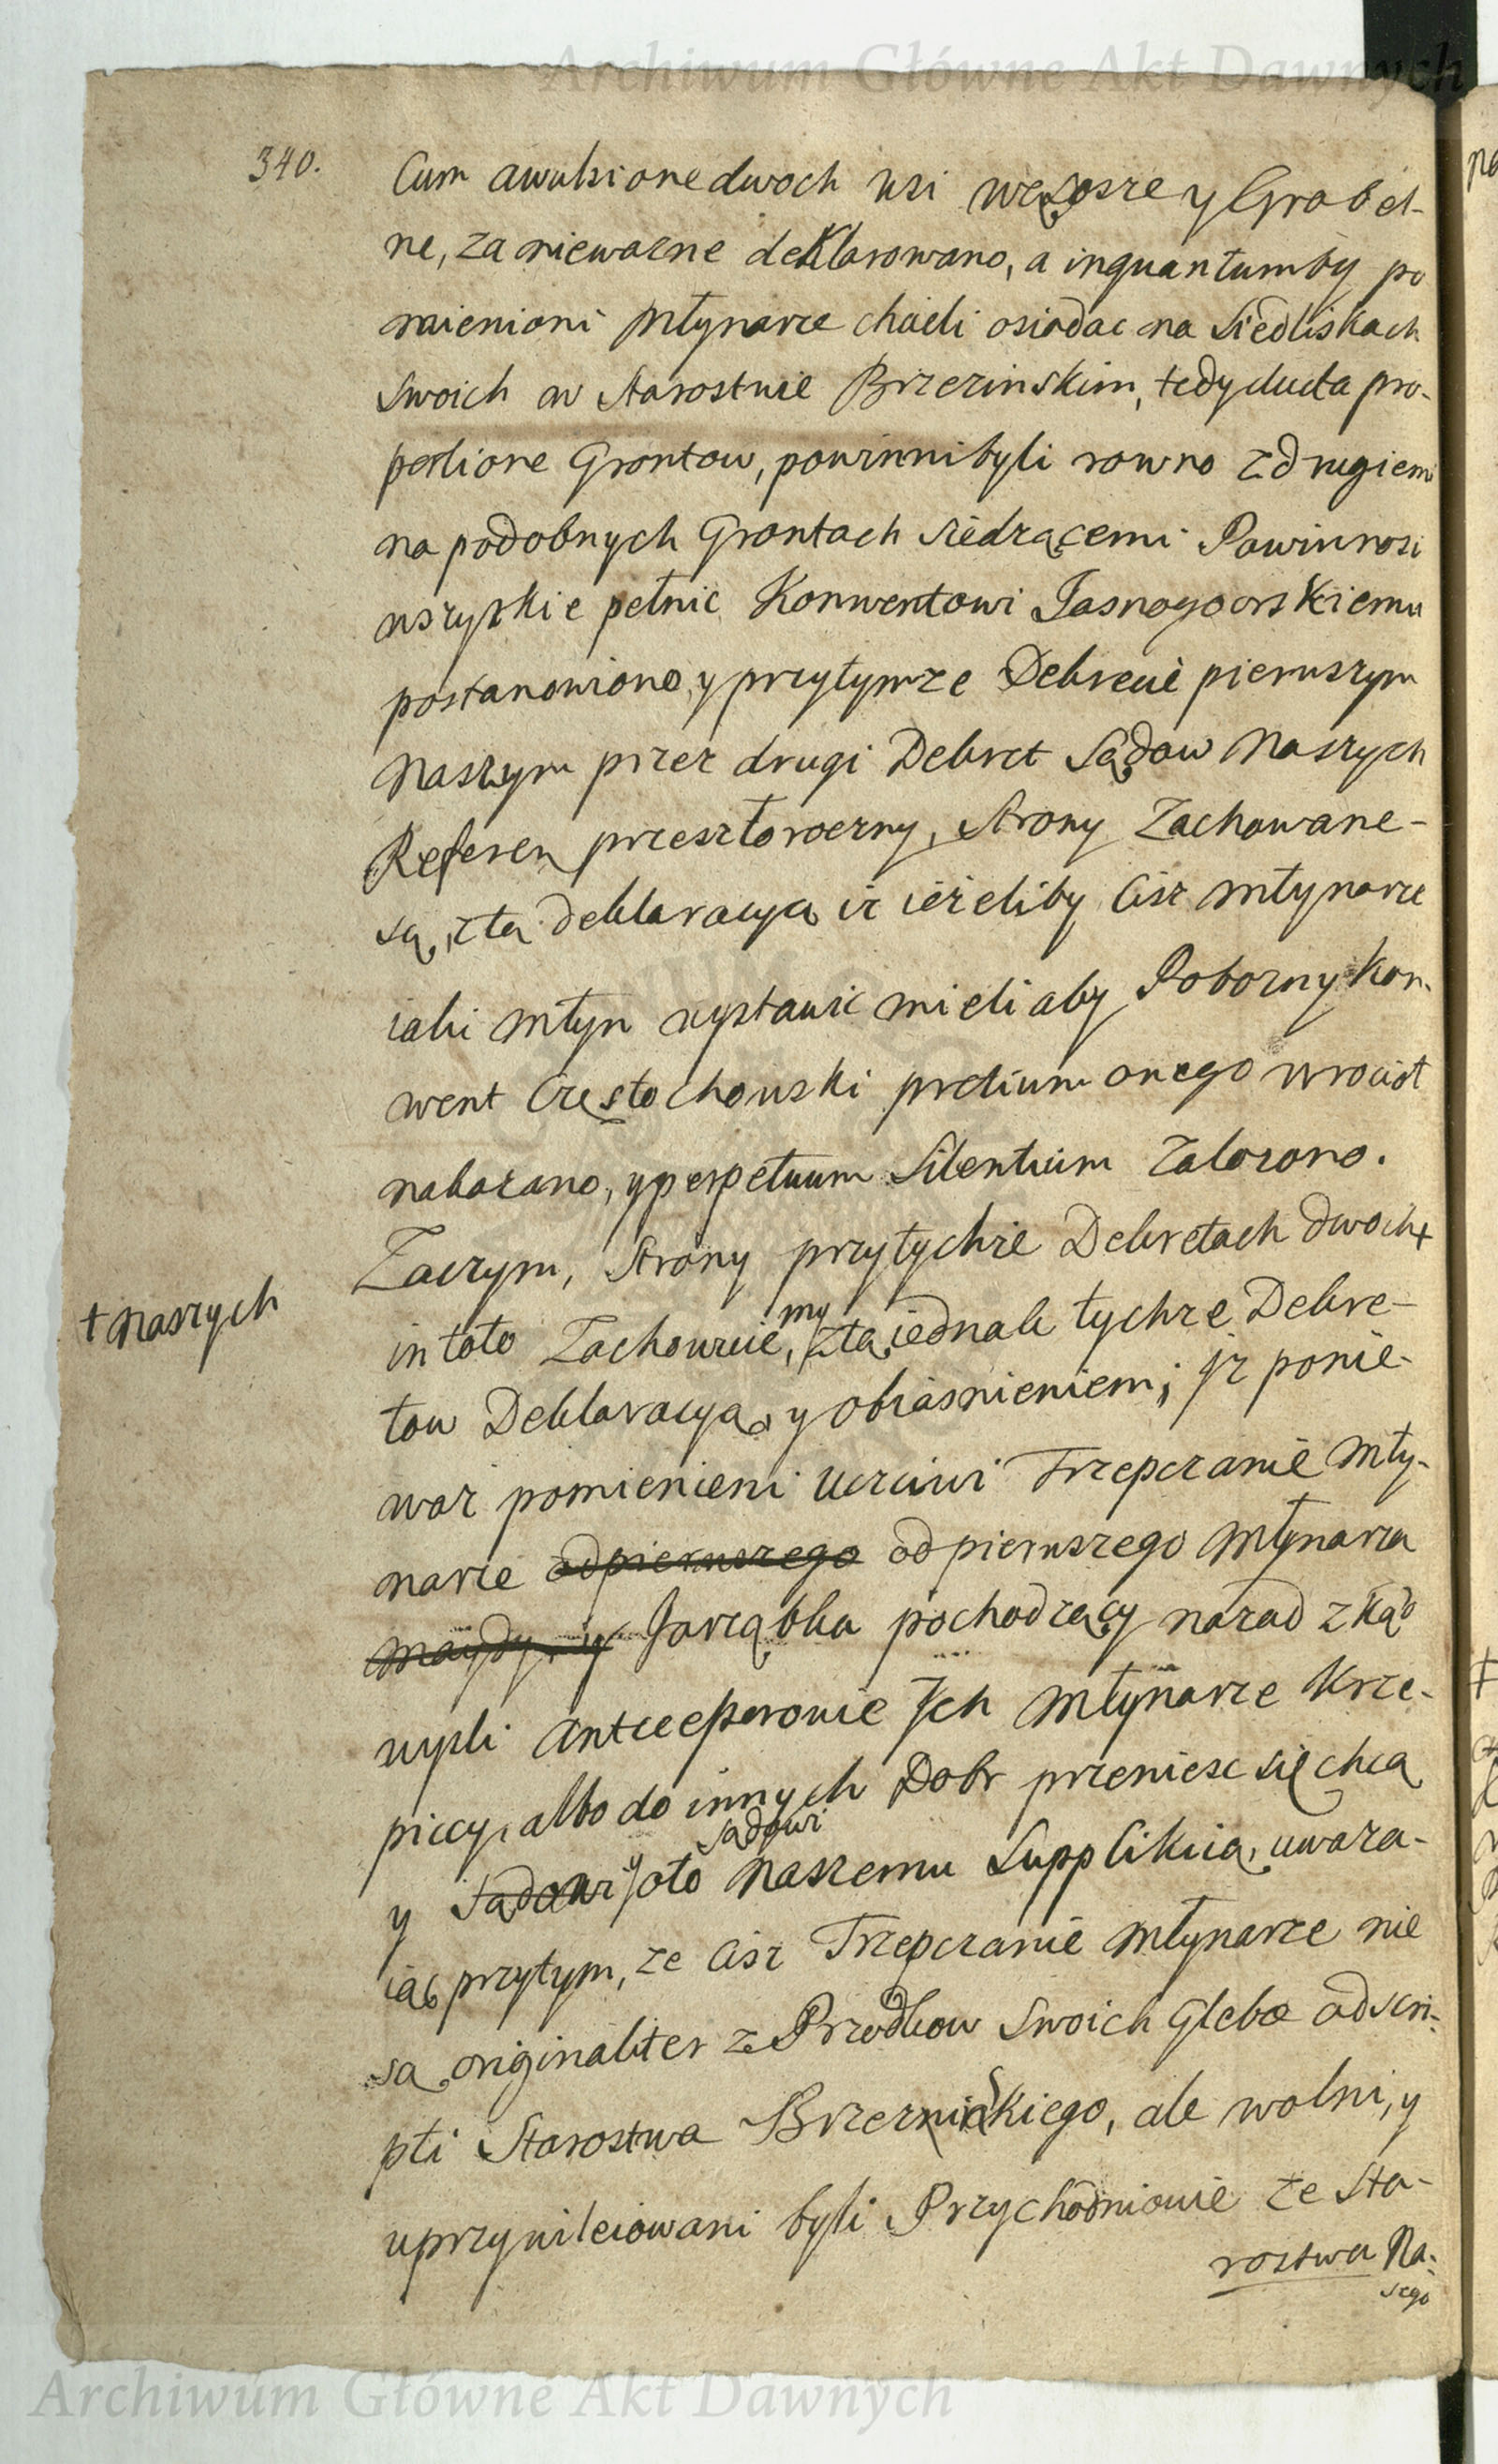 Archiwum Główne Akt Dawnych
340.
Cum awulsione dwoch wsi Węzosze y Grabel-
ne, za niewazne deklarowano, a inquantumby po
mienioni Młynarze chcieli osiadac na Siedliskach
swoich w Starostwie Brzezinskim, tedy ducta pro-
portione Grontow, powinni byli rowno z drugiemi
na podobnych Grontach siedzącemi Powinnosci
wszystkie pełnic Konwentowi Jasnogorskiemu
postanowiono, y przytymze Dekrecie pierwszym
Naszym przez drugi Dekret Sądow Naszych
Referen przeszłoroczny, Strony Zachowane-
są, z tą deklaracyą iz ieżeliby ciż Młynarze
iaki Młyn wystawic mieli aby Pobozny Kon-
went Częstochowski pretium onego wrocił
nakazano, y perpetuum Silentium załozono.
Zaczym, Strony przytychże Dekretach dwoch +
+ Naszych
in toto Zachowuiemy, z tą iednak tychże Dekre-
tow Deklaracyą y obiasnieniem; Jz ponie-
waz pomienieni Uczciwi Trzepczanie Mły-
narze odpierwszego od pierwszego Młynarza
Maydy, y Jarząbka pochodzący nazad zkąd
wyszli Antecessorowie Jch Młynarze Krze-
piccy, albo do innych Dobr przeniesc się chcą
y Sądowi y oto Sądowi Naszemu Supplikuią, uwaza-
iąc przytym, ze ciż Trzepczanie Młynarze nie
są originaliter z Przodkow Swoich Glebæ adscri-
pti Starostwa Brzeznickiego, ale wolni, y
uprzywileiowani byli Przychodniowie ze Sta-
rostwa Na-
szego
Archiwum Główne Akt Dawnych